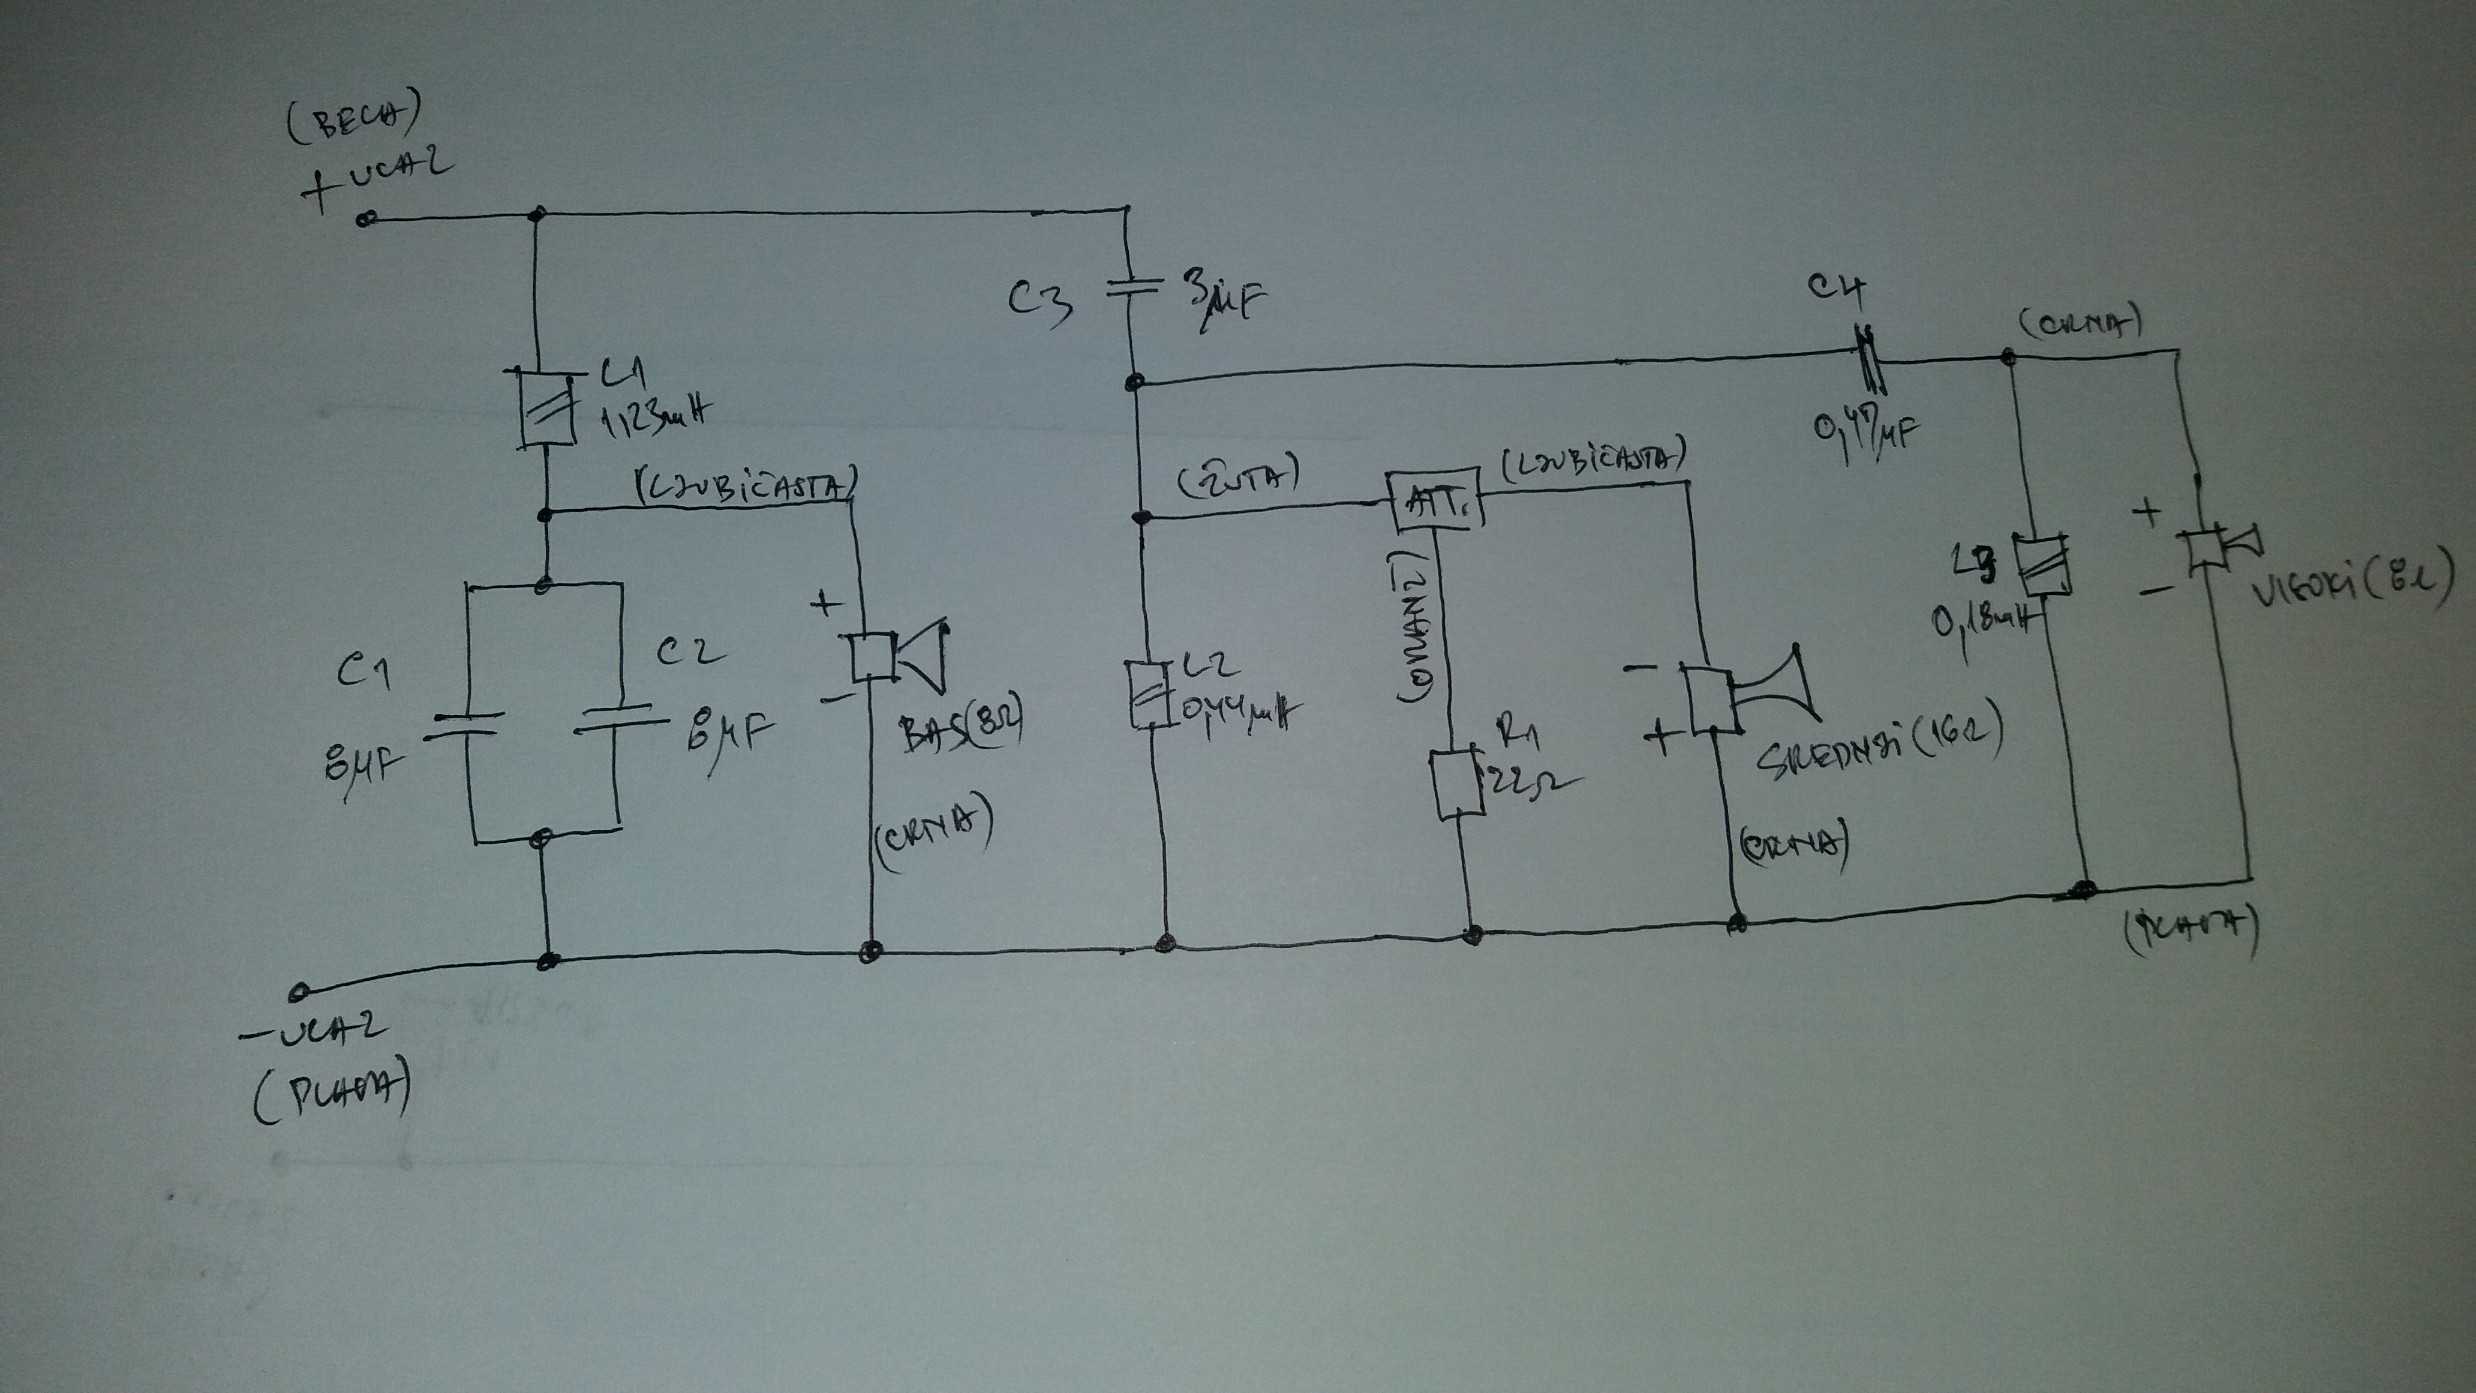 (BELA)
+ ULAZ
C3
3µF
C4
(CRNA)
0,47µF
L1
1,23mH
(LJUBIČASTA)
(ŽUTA)
ATT.
(LJUBIČASTA)
+
-
(ORANŽ)
L3
0,18mH
+
-
VISOKI (8Ω)
C1
8µF
C2
8µF
BAS(8Ω)
(CRNA)
L2
0,44mH
R1
22Ω
-
+
SREDNJI (16Ω)
(CRNA)
(PLAVA)
- ULAZ
(PLAVA)